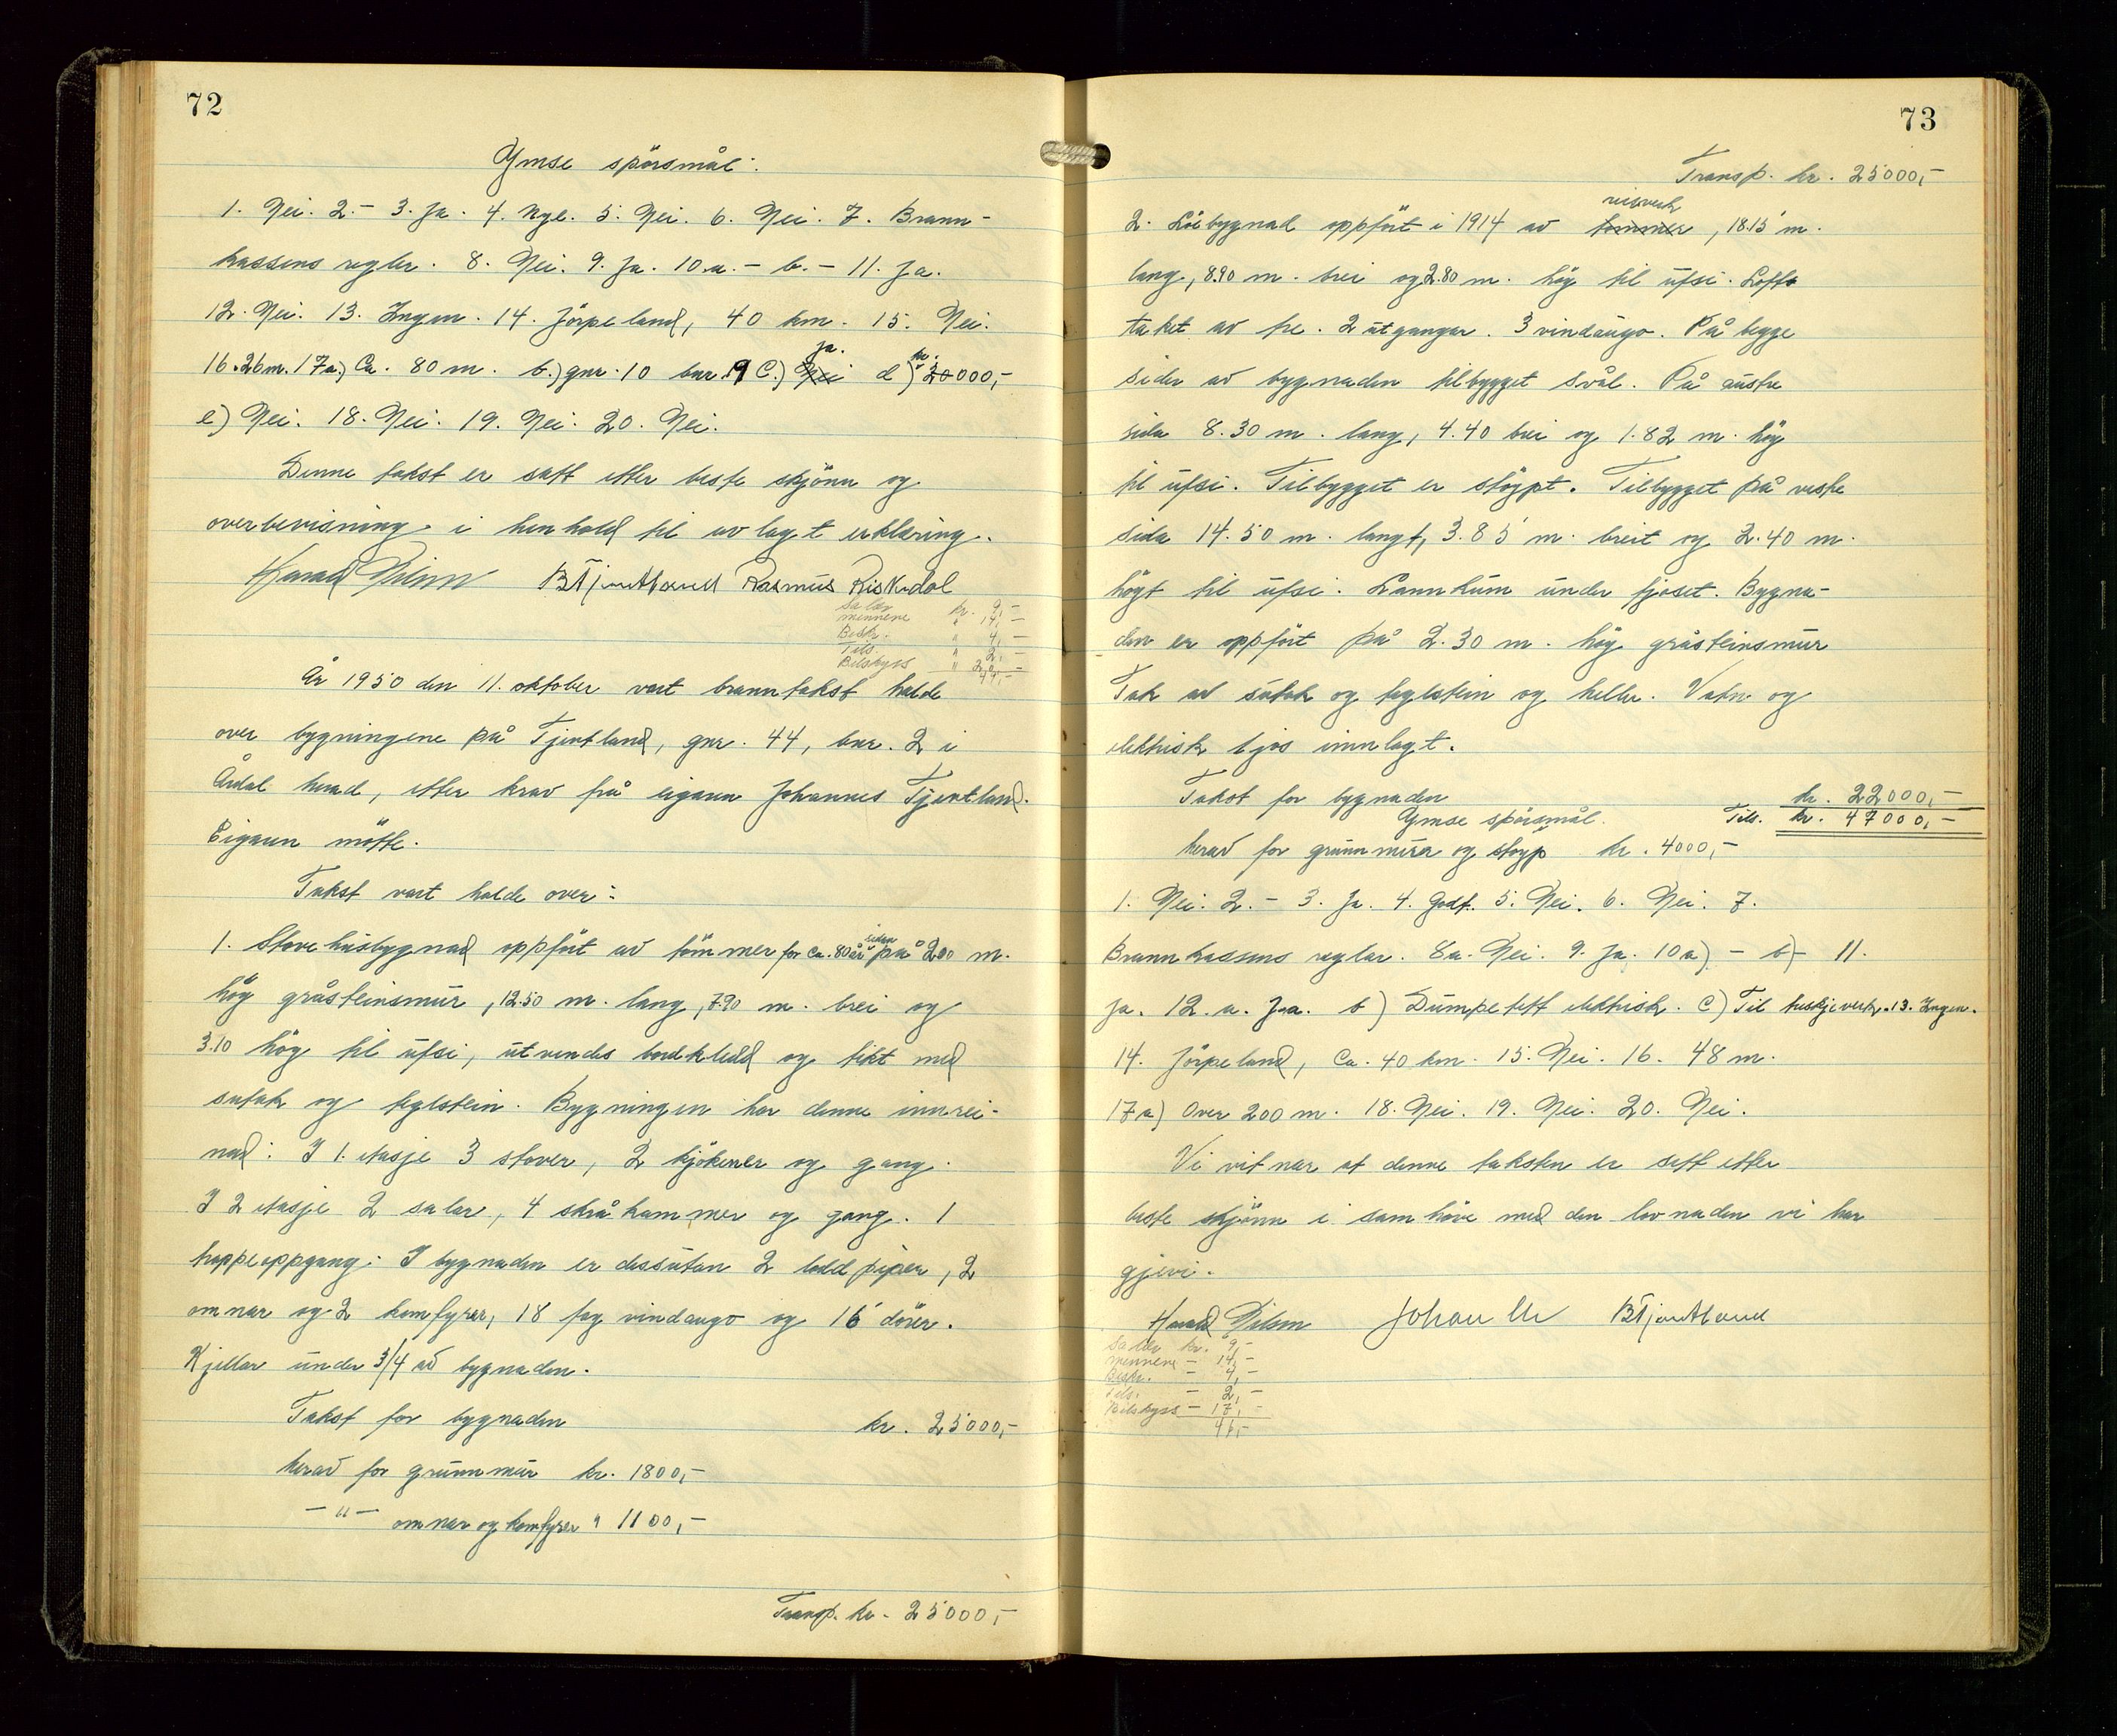 72
Ymse spörsmål:
1. Nei. 2. - 3. Ja. 4. Nye. 5. Nei. 6. Nei. 7. Brann-
kassens regler. 8. Nei. 9. Ja. 10.a. - b. - 11. Ja.
12. Nei. 13. Ingen. 14. Jörpeland, 40 km. 15. Nei.
16. 26 m. 17a.) Ca. 80 m. b.) gnr. 10 bnr. 9 C.) Nei ja. d) kr. 30000,-
e) Nei. 18. Nei. 19. Nei. 20. Nei.
Denne takst er satt etter beste skjönn og
overbevisning i henhold til avlagt erklæring.
Harald Nilsen B Tjentland Rasmus Riskedal
Salær kr. 9,-
mennene " 14,-
Beskr. " 4,-
Tils. " 2,-
Bilskyss
År 1950 den 11. oktober vart branntakst halde
over bygningene på Tjentland, gnr. 44, bnr. 2 i
Årdal herad, etter krav frå eigaren Johannes Tjentland.
Eigaren mötte.
Takst vart halde over:
1. Stovehúsbygnad oppfört av tömmer for ca. 80 år siden på 2.00 m.
hög gråsteinsmúr, 12.50 m. lang, 7.90 m. brei og
3.10 hög til úfsi, útvendes bordkledd og tekt med
sutak og teglstein. Bygningen har denne innrei-
nad: I 1. etasje 3 stover, 2 kjökener og gang.
I 2 etasje 2 salar, 4 skråkammer og gang. 1
trappeoppgang. I bygnaden er dessútan 2 ledd piper, 2
omnar og 2 komfyrer, 18 fag vindaugo og 16 dörer.
Kjellar únder 3/4 av bygnaden.
Takst for bygnaden kr. 25000,-
herav for grúnnmúr kr. 1800,-
- " - omnar og komfyrer " 1100,-
Transp. kr. 25000,-
73
Transp. kr. 25000,-
2. Löebygnad oppfört i 1914 av tömmer reisverk, 18.15 m.
lang, 8.90 m. brei og 2.80 m. hög til úfsi. Lofts
taket av tre. 2 útgangar. 3 vindaúgo. På begge
sider av bygnaden tilbygget svål. På aústre
sida 8.30 m. lang, 4.40 brei og 1.82 m. hög
til úfsi. Tilbygget er stöypt. Tilbygget på vestre
sida 14.50 m. langt, 3.85 m. breit og 2.40 m.
högt til úfsi. Lannkúm únder fjöset. Bygna-
den er oppfört på 2.30 m. hög gråsteinsmúr
Tak av sútak og teglstein og heller. Vatn og
elektrisk ljos innlagt.
Takst for bygnaden kr. 22000,-
Ymse spörsmål. Tils. kr. 47000,-
herav for grúnnmúrer og stöyp kr. 4000,-
1. Nei. 2. - 3. Ja. 4. Godt. 5. Nei. 6. Nei. 7.
Brannkassens reglar. 8a. Nei. 9. Ja. 10a) - b) - 11.
Ja. 12.a. Jaa. b) Dúmpetett elektrisk. C) Til treskjeverk. 13. Ingen.
14. Jörpeland, Ca. 40 km. 15. Nei. 16. 48 m.
17a) Over 200 m. 18. Nei. 19. Nei. 20. Nei.
Vi vitnar at denne taksten er sett etter
beste skjönn i samhöve med den lovnaden vi har
gjevi.
Harald Nilsen Johan B Tjentland
Salær kr. 9,-
mennene - 14,-
Beskr. - 4,-
Tils. - 2,-
Bilskyss - 17,-